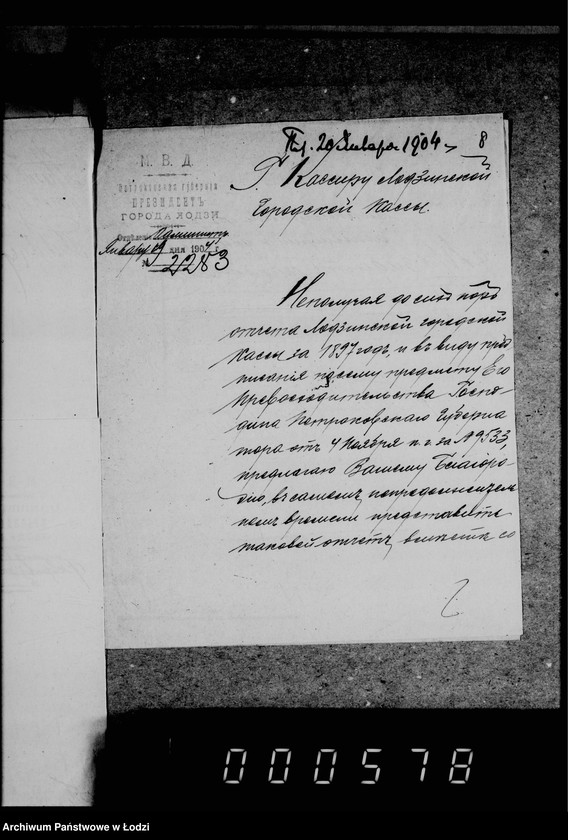 Пр. 20 Января 1904 г. 8
М. В. Д.
Петроковская губернія
ПРЕЗИДЕНТЪ
ГОРОДА ЛОДЗИ
Отдѣленіе Администр.
Января 19 дня 1904 г.
№ 2283
Г. Кассиру Лодзинской
Городской Кассы.
Неполучая до сихъ поръ
отчета Лодзинской городской
Кассы за 1897 годъ, и въ виду пред
писанія по сему предмету Его
Превосходительства Госпо-
дина Петроковскаго Губерна
тора отъ 4 Ноября п. г. за № 9533,
предлагаю Вашему Благоро-
дію, въ самомъ непродолжитель
номъ времени представить
таковой отчетъ, вмѣстѣ со
000578
Archiwum Państwowe w Łodzi